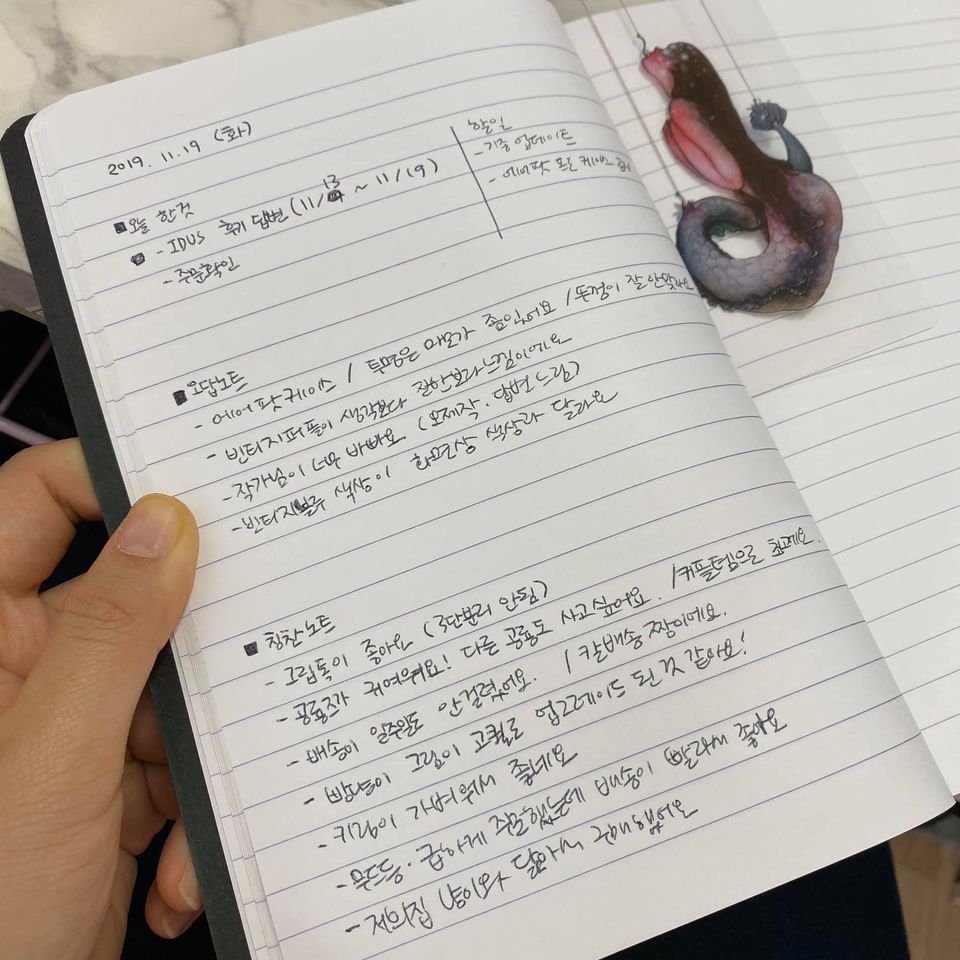 2019. 11.19 (화)
■오늘 한것
- IDUS 후기 답변 (11/13 ~ 11/19)
- 주문확인
할일
- 기종 업데이트
- 에어팟 프로 케이스
■오답노트
- 에어팟케이스 / 투명은 마모가 좀있어요 / 뚜껑이 잘안맞아요
- 빈티지퍼플이 생각보다 진한보라느낌이에요
- 작가님이 너무 바빠요 (오제작·답변느림)
- 빈티지블루 색상이 화면상 색상과 달라요
■ 칭찬노트
- 그립톡이 좋아요 (3단분리 안됨)
- 공룡즈가 귀여워요! 다른 공룡도 사고싶어요. /커플템으로 최고에요.
- 배송이 일주일도 안걸렸어요. / 칼배송 짱이에요.
- 빵냥이 그림이 고퀄로 업그레이드 된 것 같아요!
- 키링이 가벼워서 좋네요
- 급하게 주문했는데 배송이 빨라서 좋아요
- 저희집 냥이와 닮아서 구매했어요